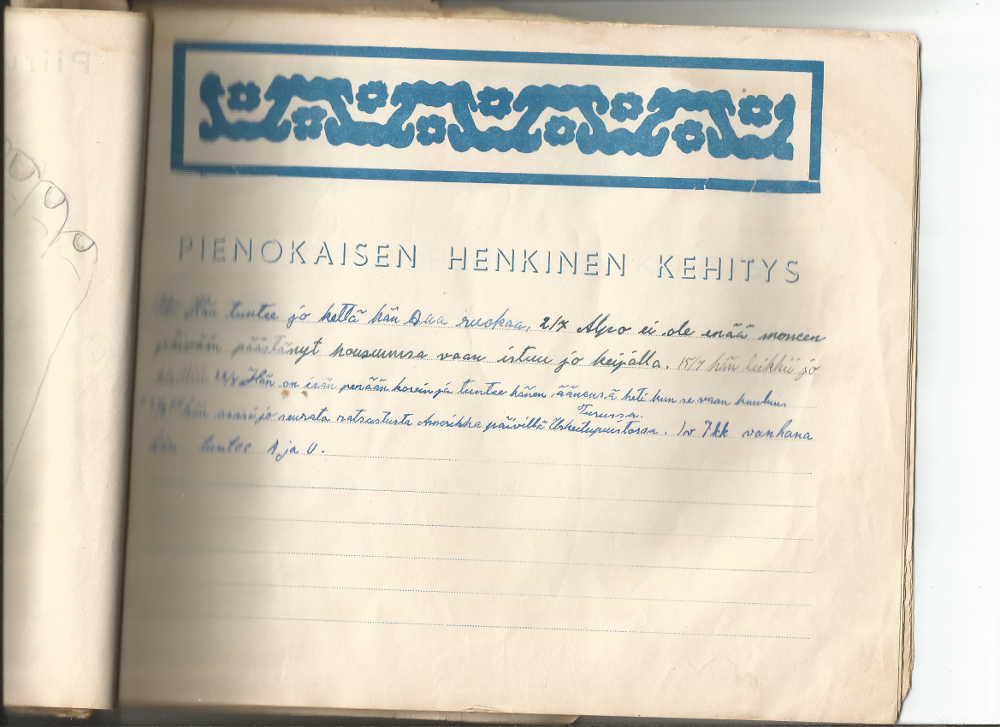 Piiru
PIENOKAISEN HENKINEN KEHITYS
Hän tuntee jo keltä hän saa ruokaa, 2/7 Alpo ei ole enää moneen
päivään päästänyt housuunsa vaan istuu jo keijalla. 15/7 hän leikkii jo
Hän on isän perään kovin ja tuntee hänen äänensä heti kun se vaan kuuluu
Turussa.
hän osasi jo seurata ratsastusta Amerikka päivillä Urheilupuistossa. 1v 7kk vanhana
hän tuntee A ja U.